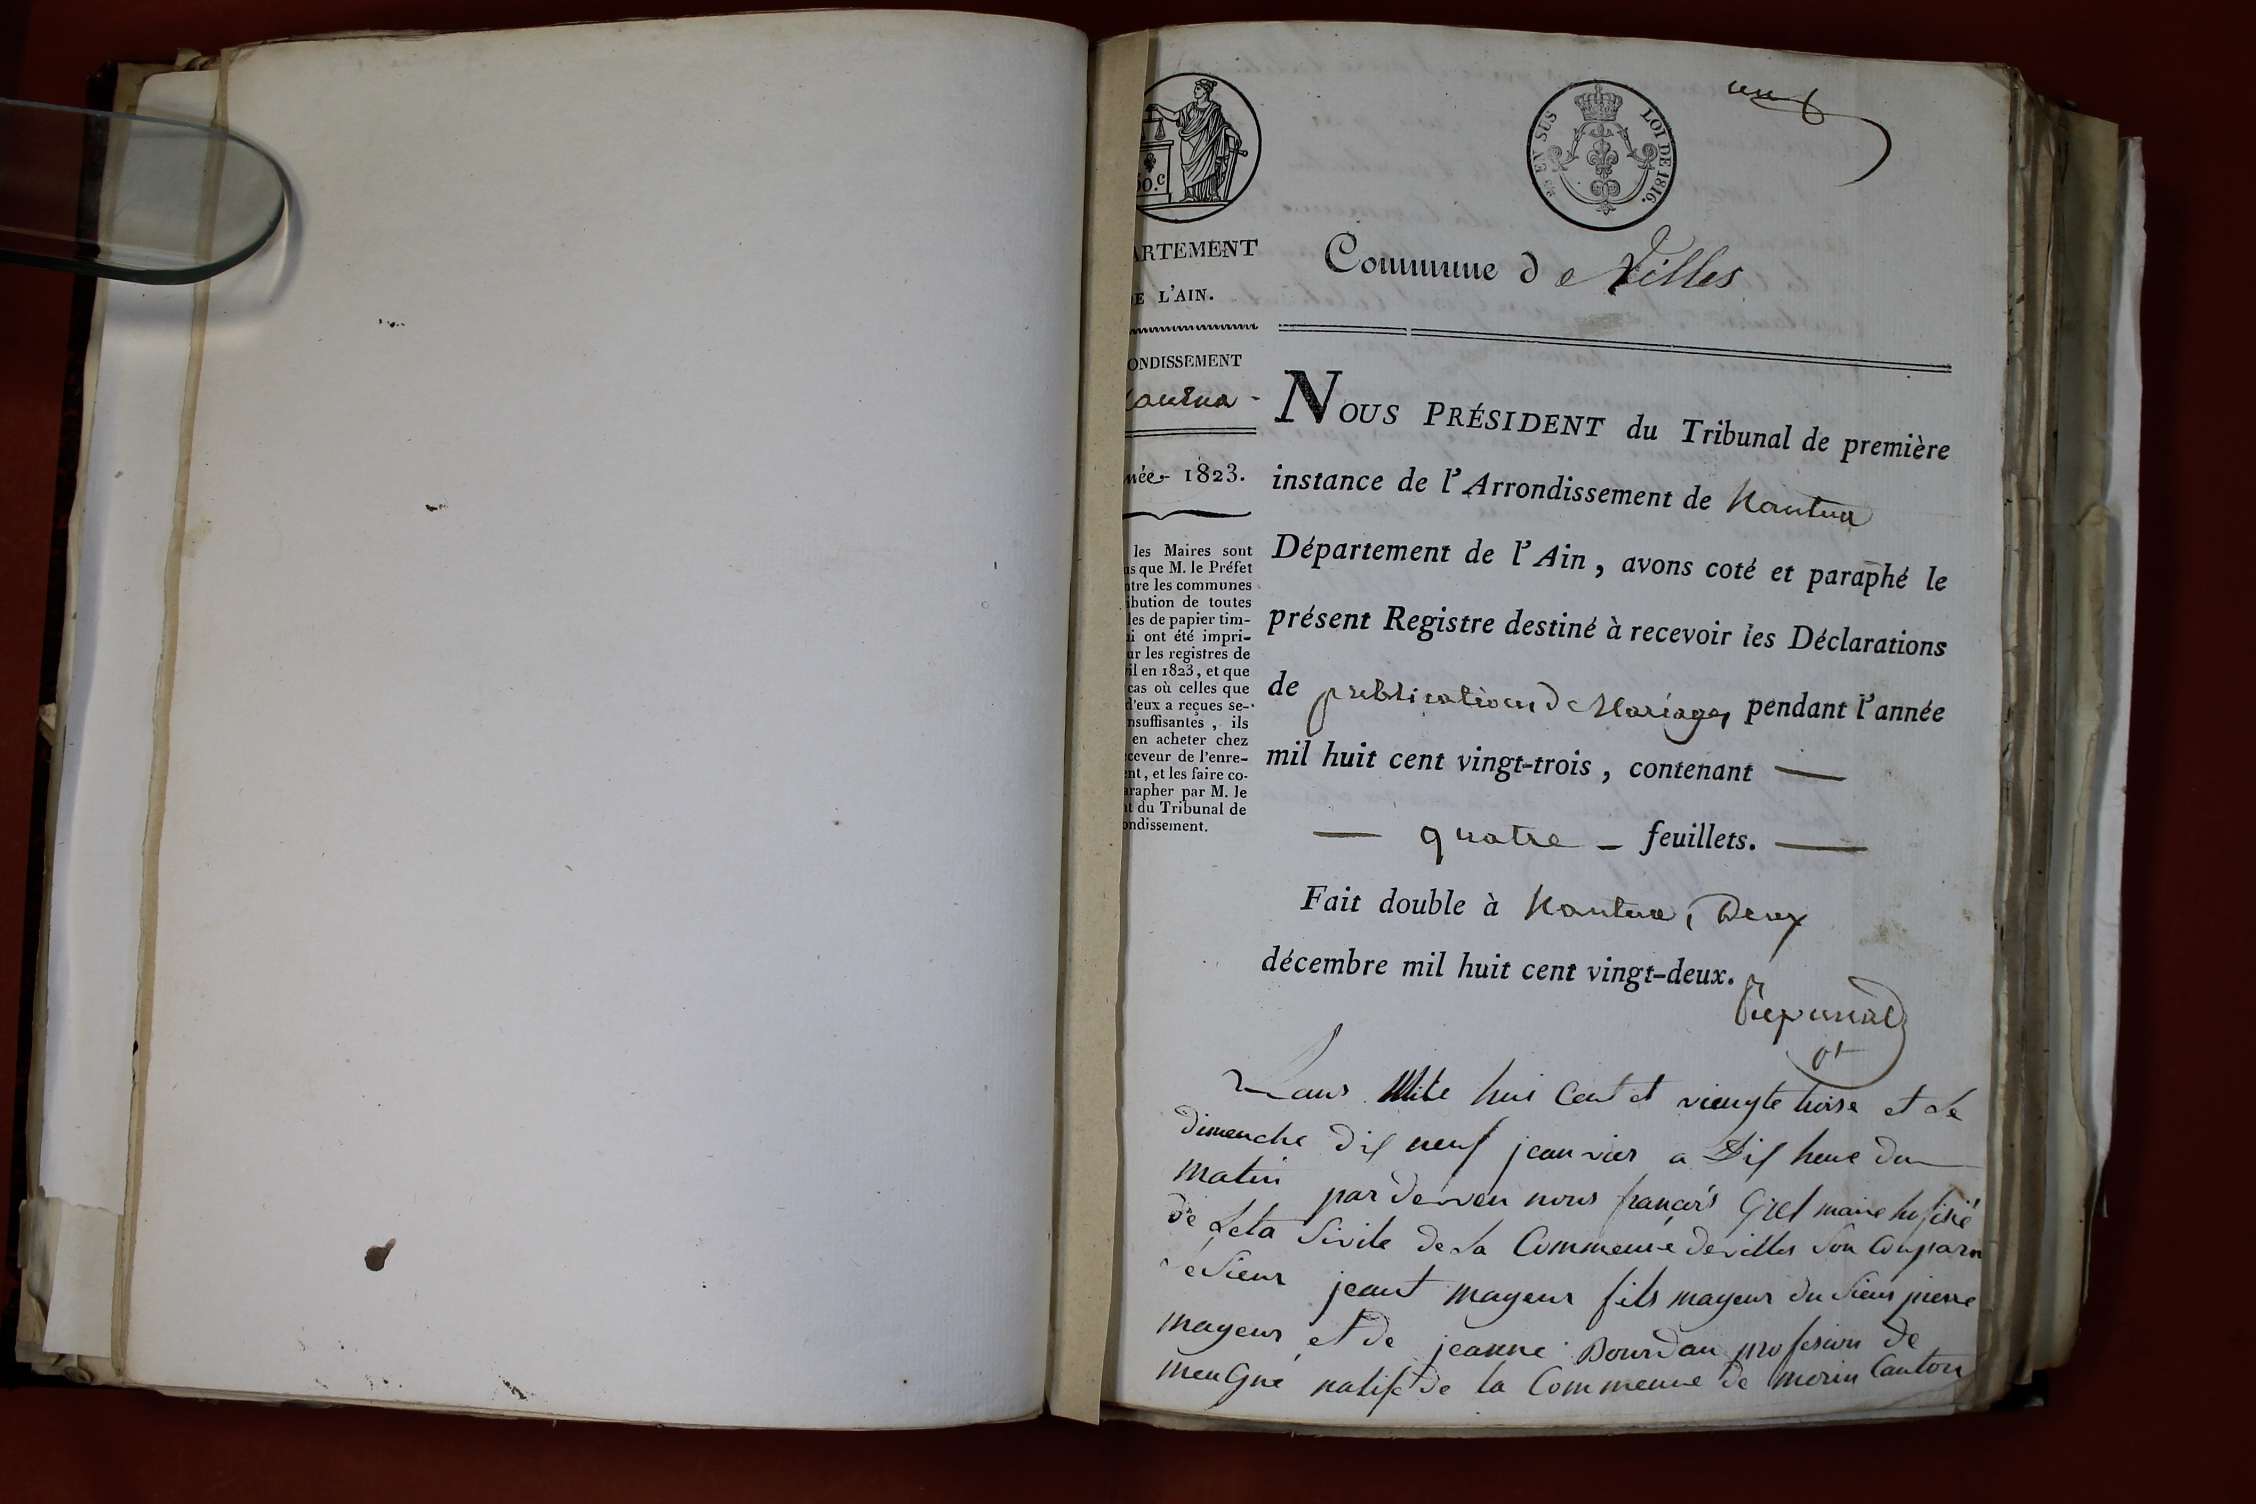 un
50.c
EN SUS
LOI DE 1816.
ARTEMENT
E L'AIN.
ONDISSEMENT
Nantua
née 1823.
les Maires sont
us que M. le Préfet
ntre les communes
ibution de toutes
les de papier tim-
ui ont été impri-
ur les registres de
vil en 1823, et que
cas où celles que
d'eux a reçues se-
nsuffisantes, ils
en acheter chez
ceveur de l'enre-
ent, et les faire co-
arapher par M. le
nt du Tribunal de
ondissement.
Commune de Villes
NOUS PRÉSIDENT du Tribunal de première
instance de l'Arrondissement de Nantua
Département de l'Ain, avons coté et paraphé le
présent Registre destiné à recevoir les Déclarations
de publications de Mariages pendant l'année
mil huit cent vingt-trois, contenant —
— quatre — feuillets. —
Fait double à Nantua, Deux
décembre mil huit cent vingt-deux.
Lans Mile hui Cent et vieungte troise et Le
dimenche dix neuf jeanvier a Dix heure du
matin par devven nous françois Girel maire hofisié
de Leta Sivile de La Commeune de villes Son Conparu
Le Sieur jeant mayeur fils mayeur du Sieur pierre
mayeur et de jeanne Bourdan profesion de
meugné natif de la Commeune de morin Canton